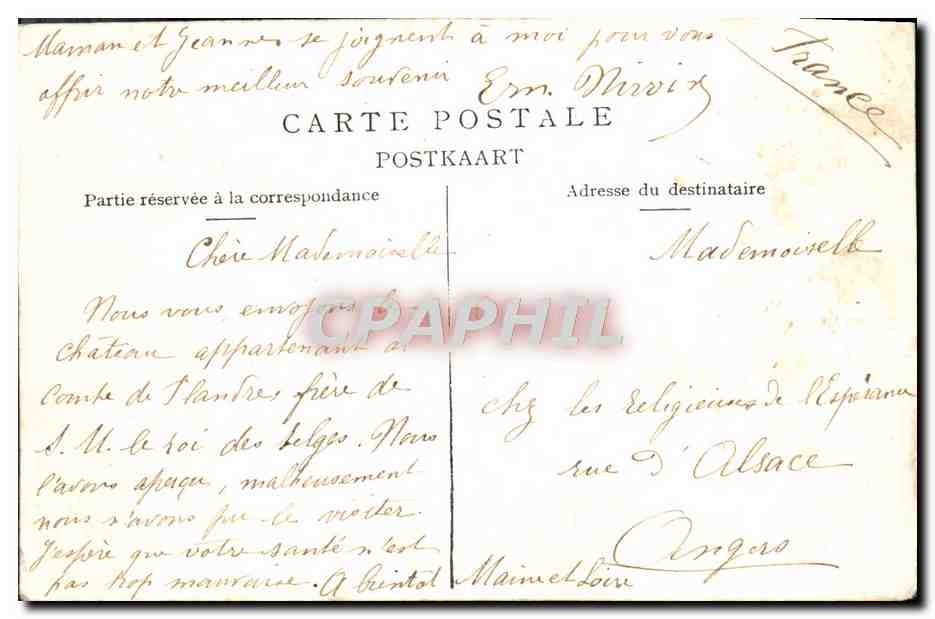 Maman et Jeanne se joignent à moi pour vous
offrir notre meilleur souvenir Ern.
France
CARTE POSTALE
POSTKAART
Partie réservée à la correspondance
Adresse du destinataire
Chère Mademoiselle
Nous vous envoyons le
château appartenant au
Comte de Flandres frère de
S. M. le roi des belges. Nous
l'avons aperçu, malheusement
nous n'avons pu le visiter.
J'espère que votre santé n'est
pas trop mauvaise. A bientôt
Mademoiselle
chez les religieuses de l'Espérance
rue d'Alsace
Angers
Maine et Loire
CPAPHIL